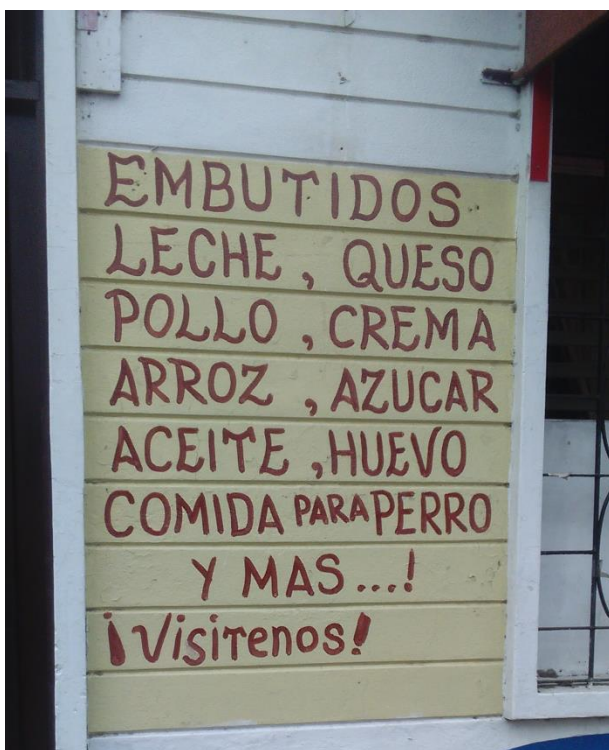 EMBUTIDOS
LECHE, QUESO
POLLO, CREMA
ARROZ, AZUCAR
ACEITE, HUEVO
COMIDA PARA PERRO
Y MAS...!
¡Visitenos!